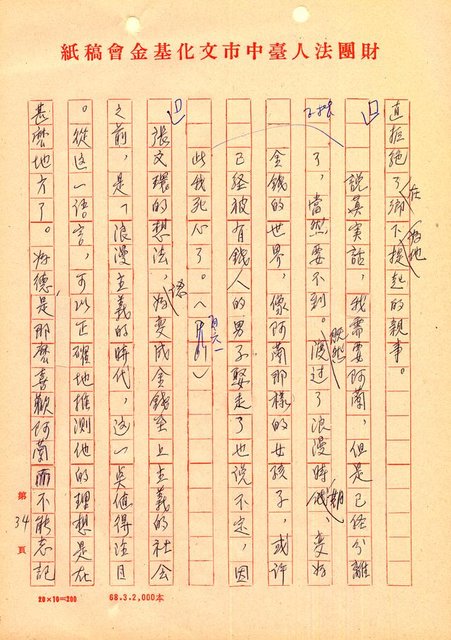 財團法人臺中市文化基金會稿紙
直拒絕了鄉下提起的親事。
在
為他
說真實話，我需要阿蘭，但是已經分離
了，當然要不到。渡過了浪漫時期、變為
既然
不採
金錢的世界，像阿蘭那樣的女孩子，或許
已經被有錢人的男子娶走了也説不定，因
此我死心了。（
張文環的想法，認為變成金錢至上主義的社會
之前，是「浪漫主義的時代」這一點值得注目
。從這一語言，可以正確地推測他的理想是在
甚麼地方了。為德是那麼喜歡阿蘭而不能忘記
第34頁
20×10=200
68.3.2,000本